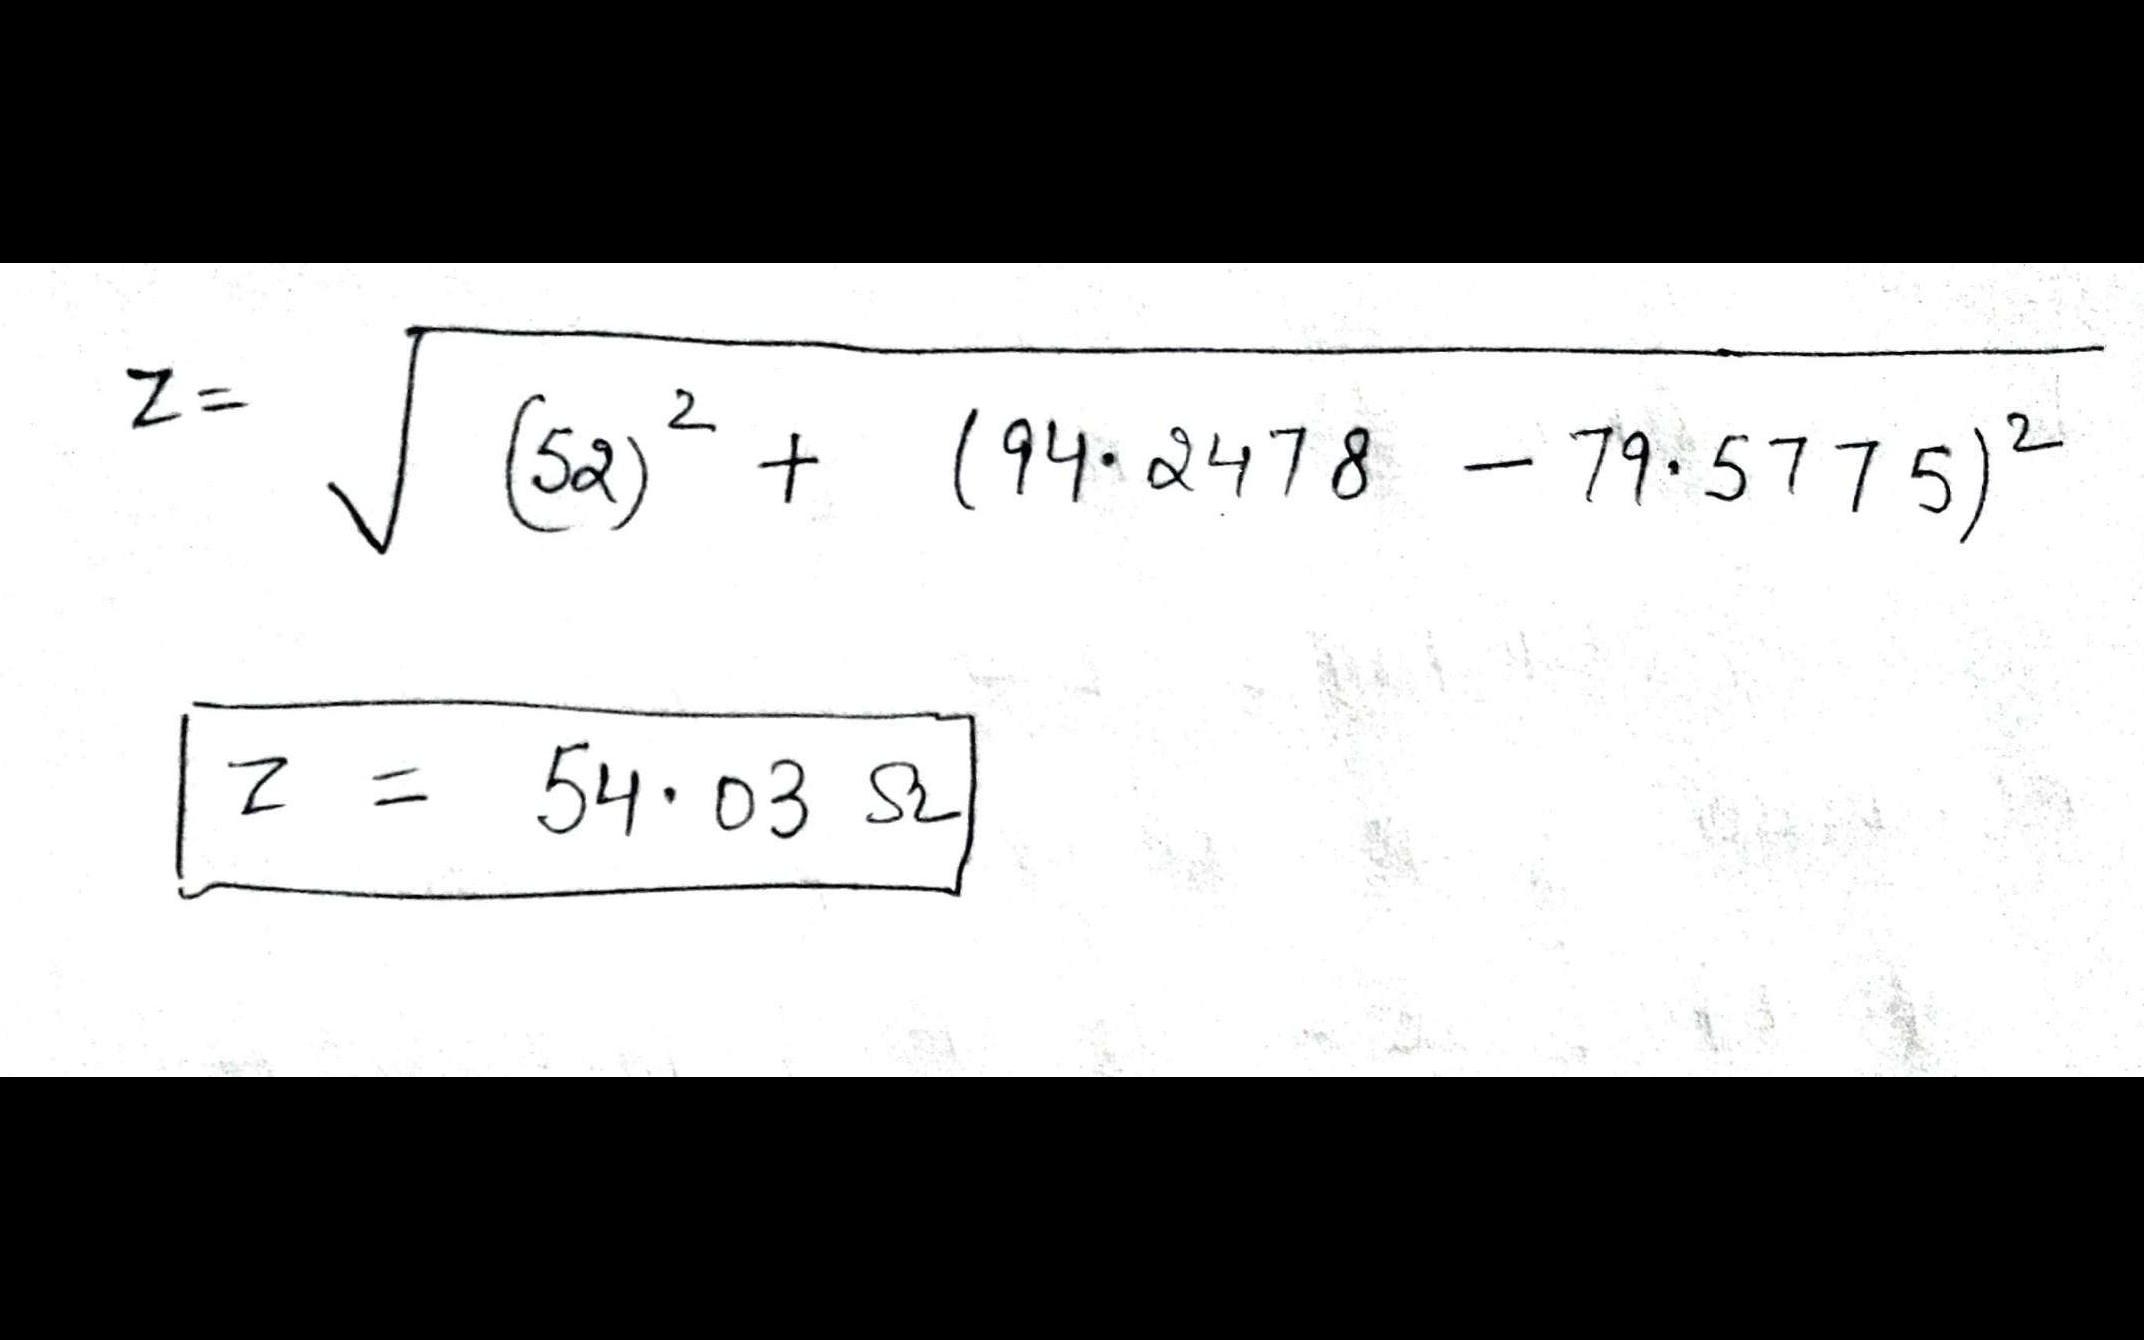 Z = √((52)² + (94.2478 − 79.5775)²)
Z = 54.03 Ω